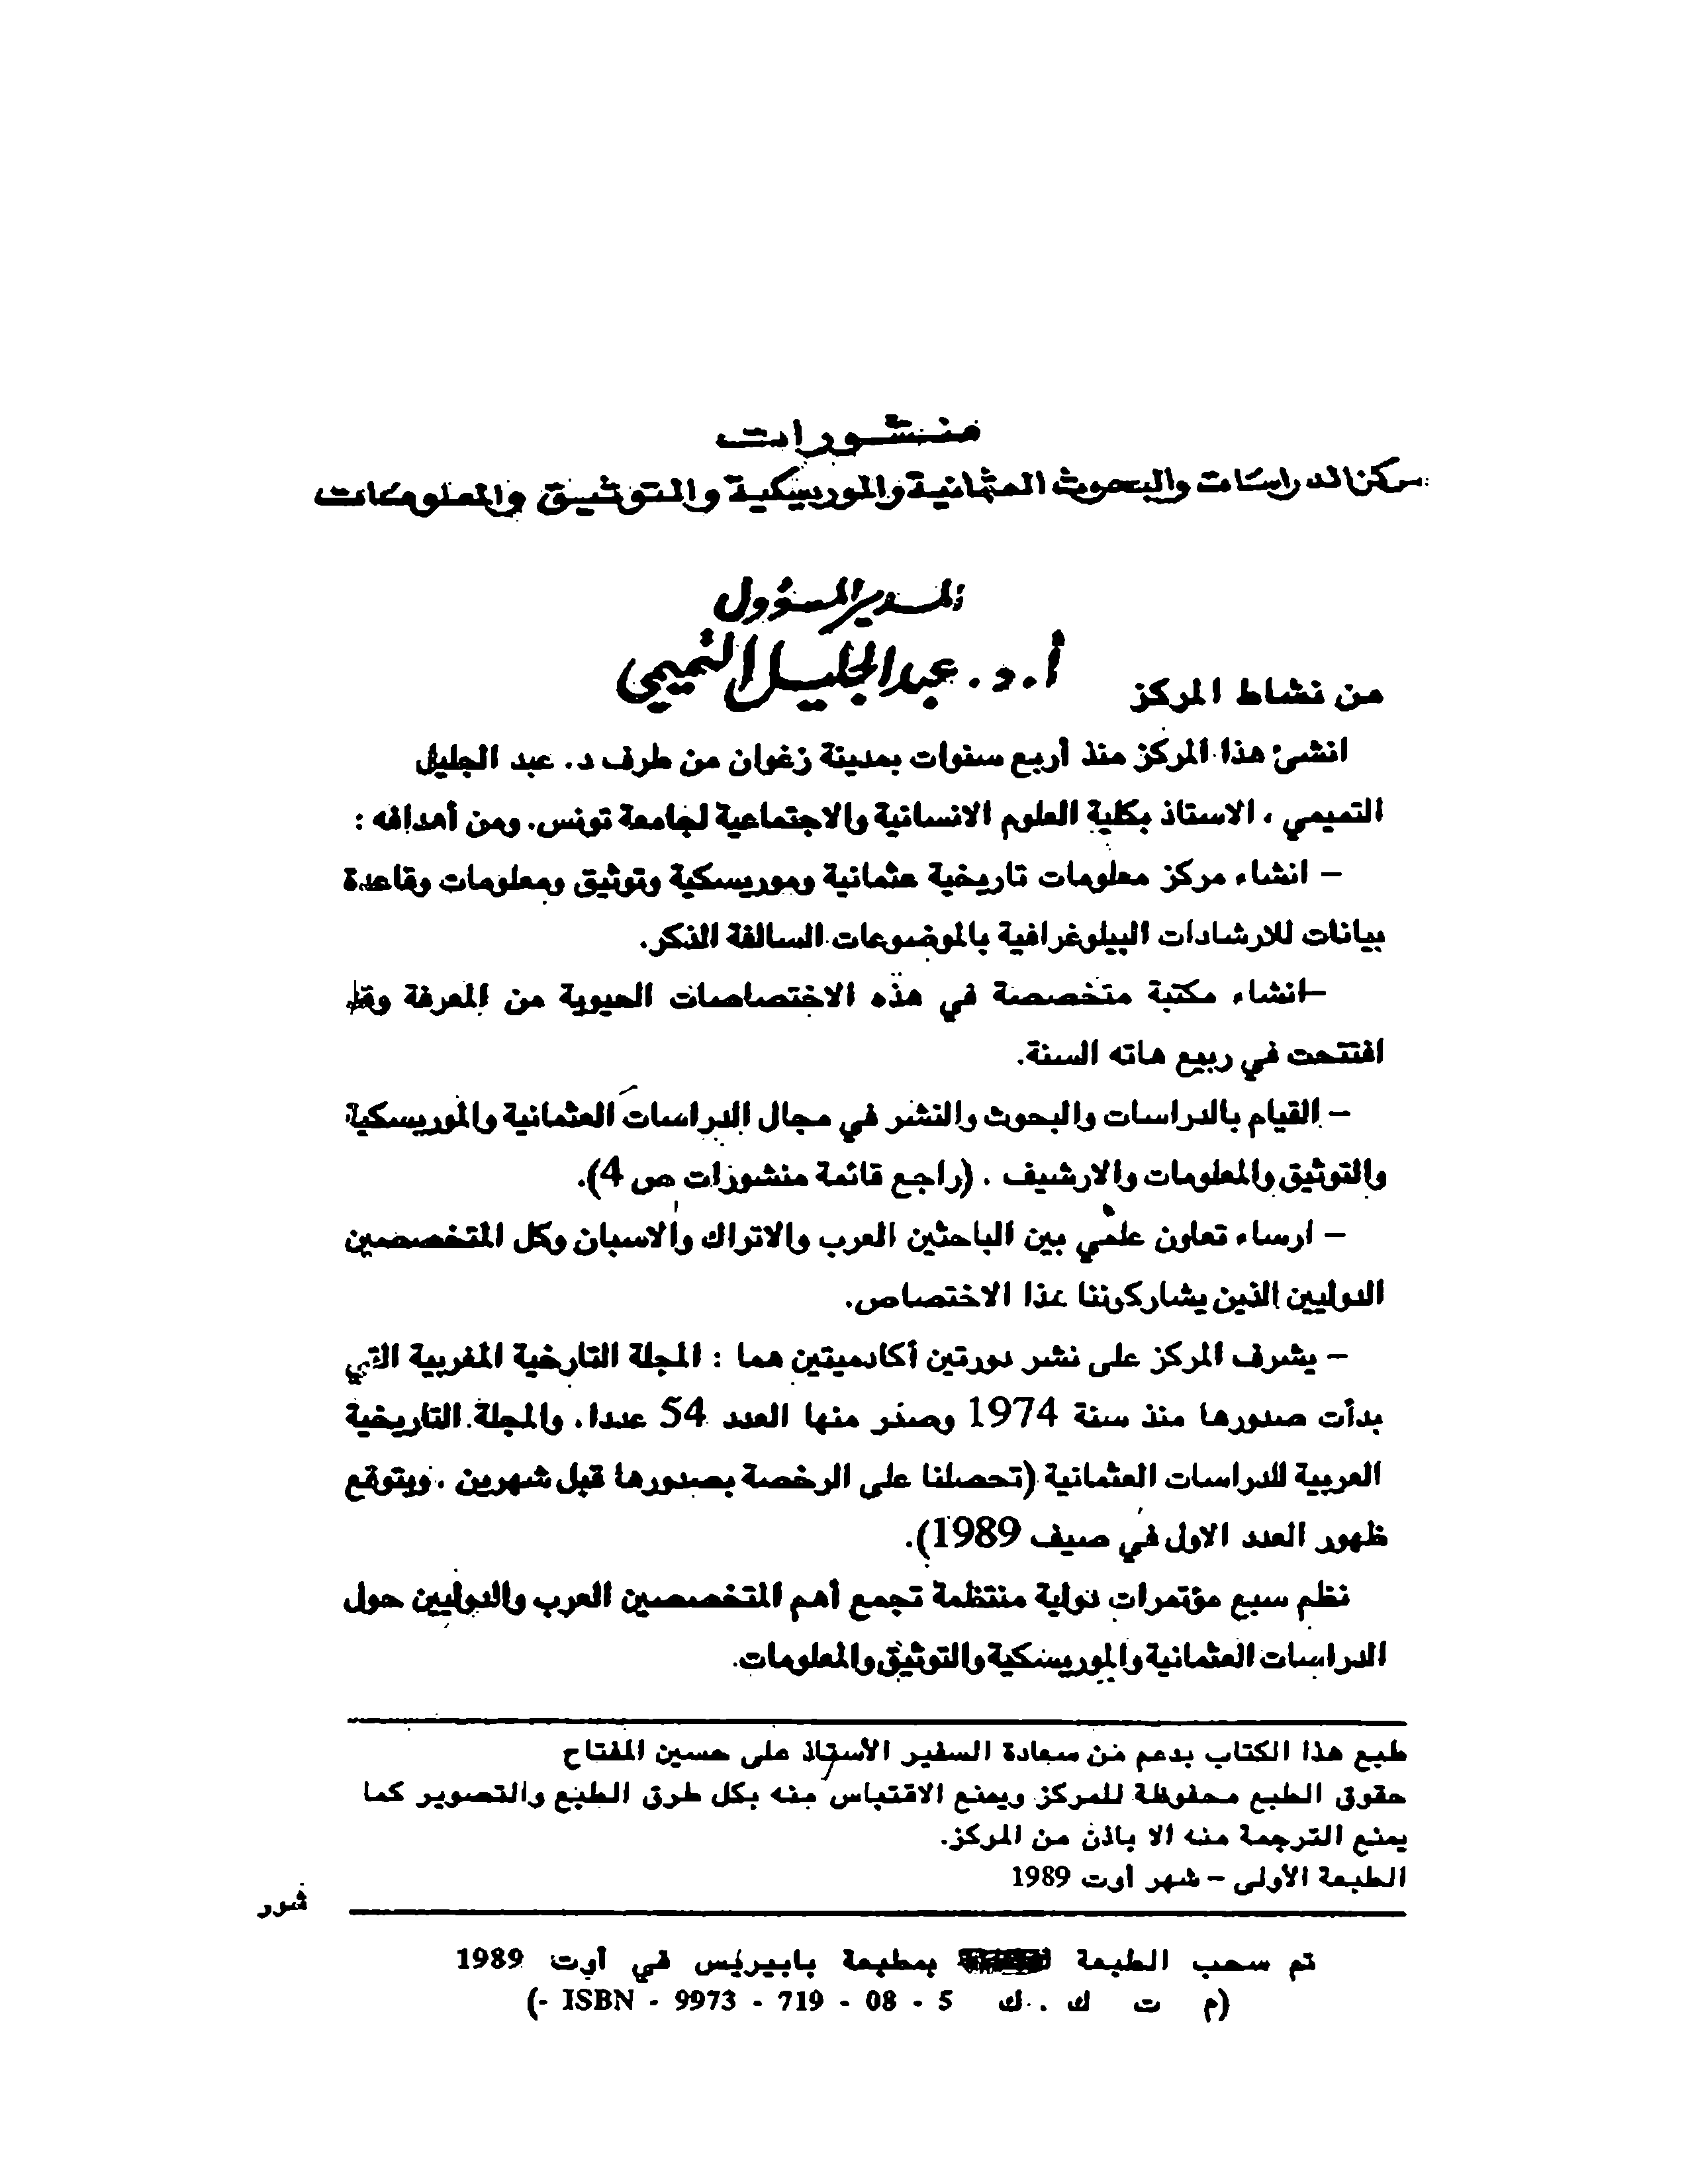 منشورات
مركز الدراسات والبحوث العثمانية والموريسكية والتوثيق والمعلومات
المدير المسؤول
أ.د. عبد الجليل التميمي
من نشاط المركز
انشئ هذا المركز منذ أربع سنوات بمدينة زغوان من طرف د. عبد الجليل
التميمي ، الاستاذ بكلية العلوم الانسانية والاجتماعية لجامعة تونس. ومن أهدافه :
– انشاء مركز معلومات تاريخية عثمانية وموريسكية وتوثيق ومعلومات وقاعدة
بيانات للارشادات البيلوغرافية بالموضوعات السالفة الذكر.
–انشاء مكتبة متخصصة في هذه الاختصاصات الحيوية من المعرفة وقد
افتتحت في ربيع هاته السنة.
– القيام بالدراسات والبحوث والنشر في مجال الدراسات العثمانية والموريسكية
والتوثيق والمعلومات والارشيف . (راجع قائمة منشورات ص 4).
– ارساء تعاون علمي بين الباحثين العرب والاتراك والاسبان وكل المتخصصين
الدوليين الذين يشاركوننا هذا الاختصاص.
– يشرف المركز على نشر دورتين أكادميتين هما : المجلة التارخية المغربية التي
بدأت صدورها منذ سنة 1974 وصدر منها العدد 54 عددا. والمجلة التاريخية
العربية للدراسات العثمانية (تحصلنا على الرخصة بصدورها قبل شهرين . ويتوقع
ظهور العدد الاول في صيف 1989).
نظم سبع مؤتمرات دولية منتظمة تجمع أهم المتخصصين العرب والدوليين حول
الدراسات العثمانية والموريسكية والتوثيق والمعلومات.
طبع هذا الكتاب بدعم من سعادة السفير الأستاذ على حسين المفتاح
حقوق الطبع محفوظة للمركز ويمنع الاقتباس منه بكل طرق الطبع والتصوير كما
يمنع الترجمة منه الا باذن من المركز.
الطبعة الأولى – شهر أوت 1989
تم سحب الطبعة بمطبعة بابيريس في أوت 1989
(م ت ك . ك ISBN - 9973 - 719 - 08 - 5 -)